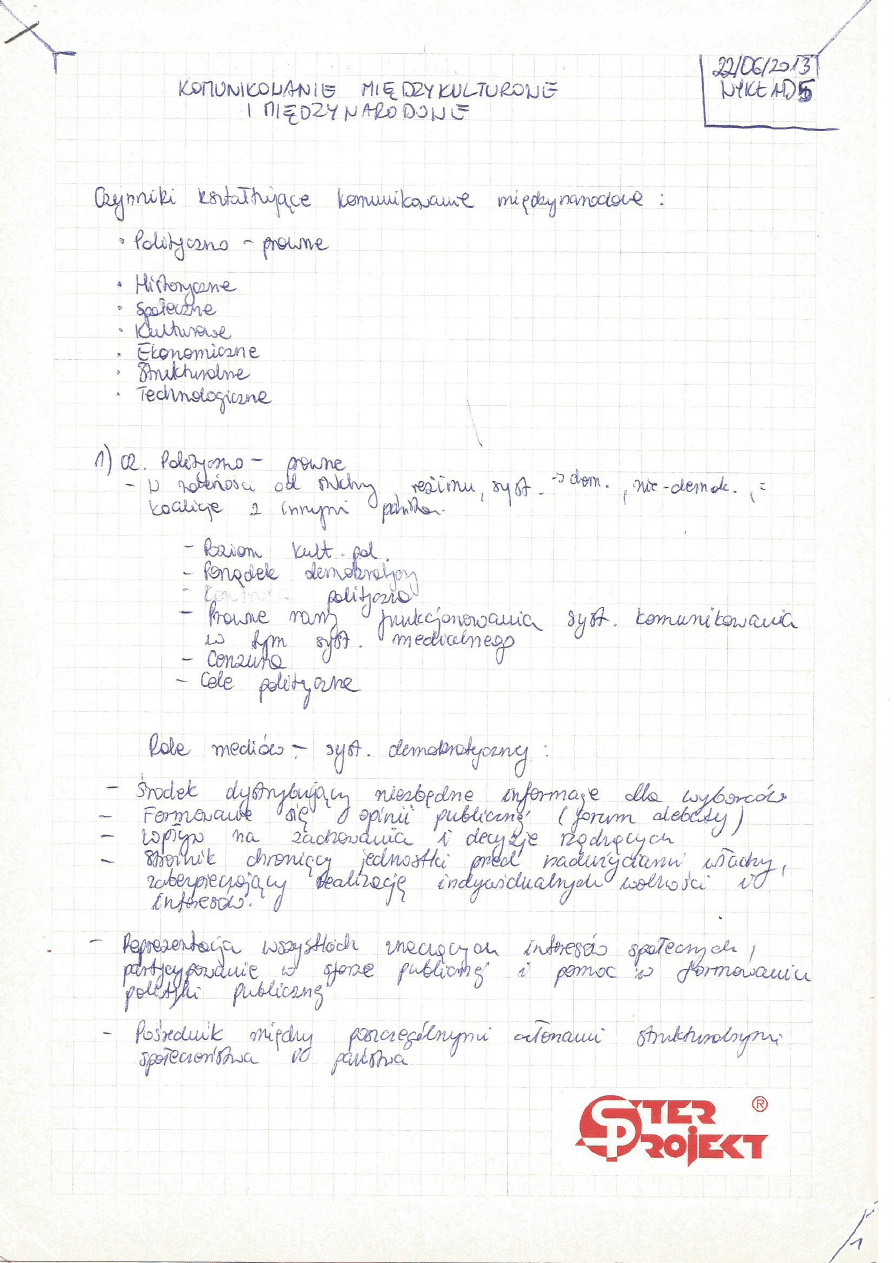 22/06/2013
WYKŁAD 5
KOMUNIKOWANIE MIĘDZYKULTUROWE
I MIĘDZYNARODOWE
Czynniki kształtujące komunikowanie międzynarodowe :
• Polityczno - prawne
• Historyczne
• Społeczne
• Kulturowe
• Ekonomiczne
• Strukturalne
• Technologiczne
1) cz. Polityczno - prawne
- w zależności od reżimu, syst. → dem., nie-demok.,
koalicje z innymi państwa.
- Poziom kult. pol.
- Porządek demokratyczny
- polityczna
- Prawne ramy funkcjonowania syst. komunikowania
w tym syst. medialnego
- Cenzura
- Cele polityczne
Role mediów - syst. demokratyczny :
- Środek dystrybujący niezbędne informacje dla wyborców
- Formowanie się opinii publicznej (forum debaty)
- Wpływ na zachowania i decyzje rządzących
- Strażnik chroniący jednostki przed nadużyciami władzy,
zabezpieczający realizację indywidualnych wolności i
interesów.
- Reprezentacja wszystkich znaczących interesów społecznych,
partycypowanie w sferze publicznej i pomoc w formowaniu
polityki publicznej
- Pośrednik między poszczególnymi członami strukturalnymi
społeczeństwa i państwa
STER
PROJEKT ®
1